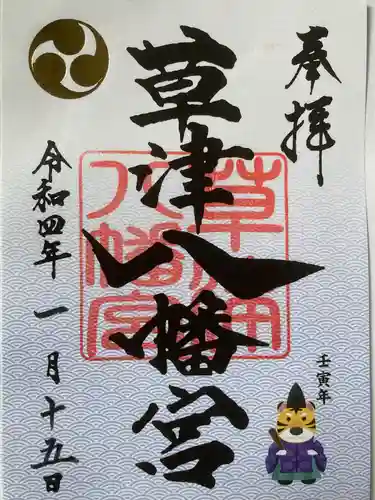 奉拝
草津八幡宮
令和四年一月十五日
壬寅年
草津
八幡宮